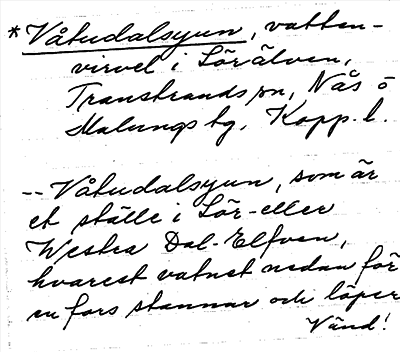 *Våtudalsyun, vatten-
virvel i Sörälven,
Transtrands sn, Nås o
Malungs tg, Kopp. l.
-- Våtudalsyun, som är
et ställe i Sör- eller
Westra Dal-Elfven,
hvarest vatnet nedan för
en fors stannar och löper
Vänd!